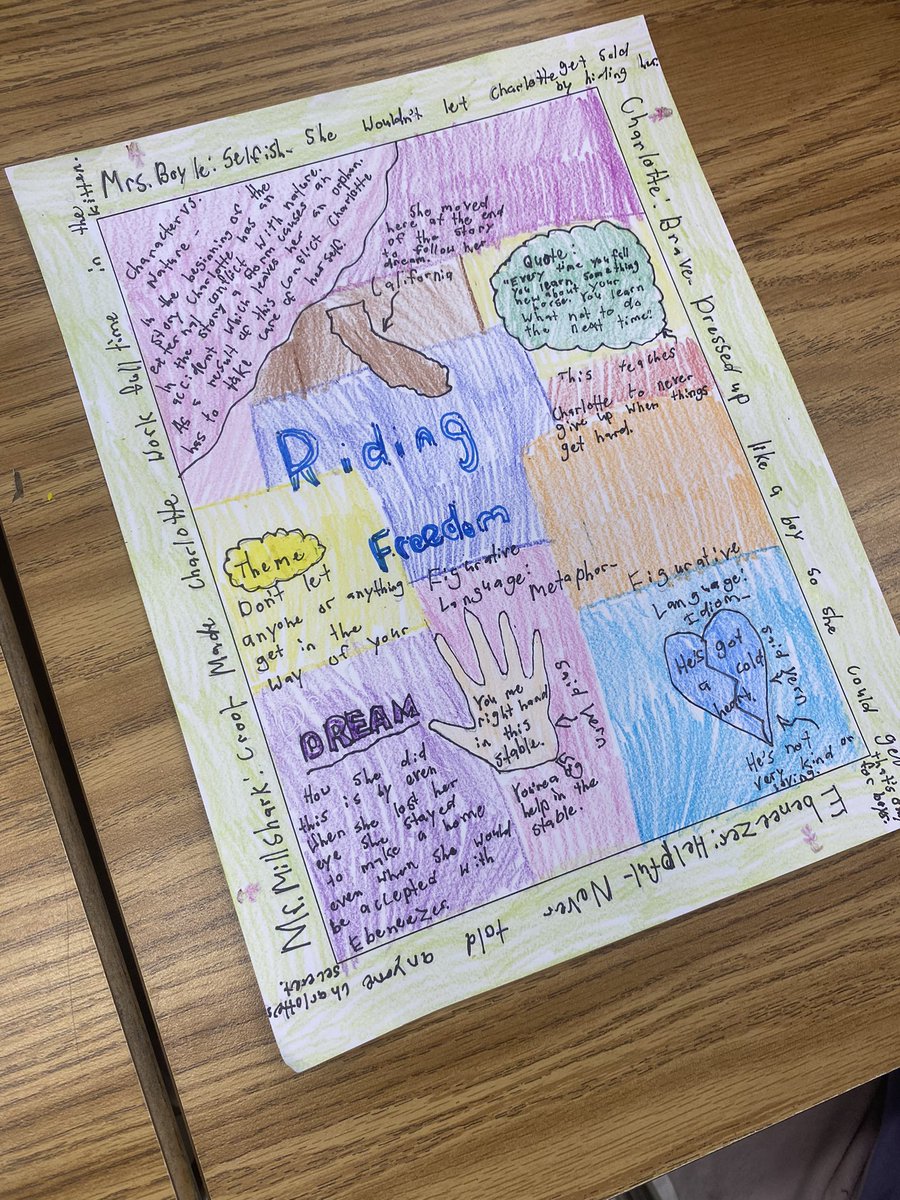 Mrs. Boyle: Selfish- She wouldn't let Charlotte get sold
by hiding her.
Charlotte: Brave- Dressed up like a boy so she could
that's only
for boys.
Ebeneezer: Helpful- Never told anyone Charlotte's
secret.
Mr. Millshark: Croot Made Charlotte work full time in
the kitten.
Character vs.
Nature-
In the beginning of the
story Charlotte has an
external conflict with nature.
In the story a storm causes an
accident which leaves her an orphan.
As a result of this conflict Charlotte
has to take care of herself.
She moved
here at the end
of the story
to follow her
dream.
California
Quote:
"Every time you fall
you learn something
new about your
horse. You learn
what not to do
the next time."
This teaches
Charlotte to never
give up when things
get hard.
Riding
Freedom
Theme
Don't let
anyone or anything
get in the
way of your
DREAM
How she did
this is by even
when she lost her
eye she stayed
to make a home
even when she would
be accepted with
Ebeneezer.
Figurative
Language: Metaphor-
You me
right hand
in this
stable.
said Vern
You're a big
help in the
stable.
Figurative
Language:
Idiom-
He's got
a cold
heart.
said Vern
He's not
very kind or
loving.